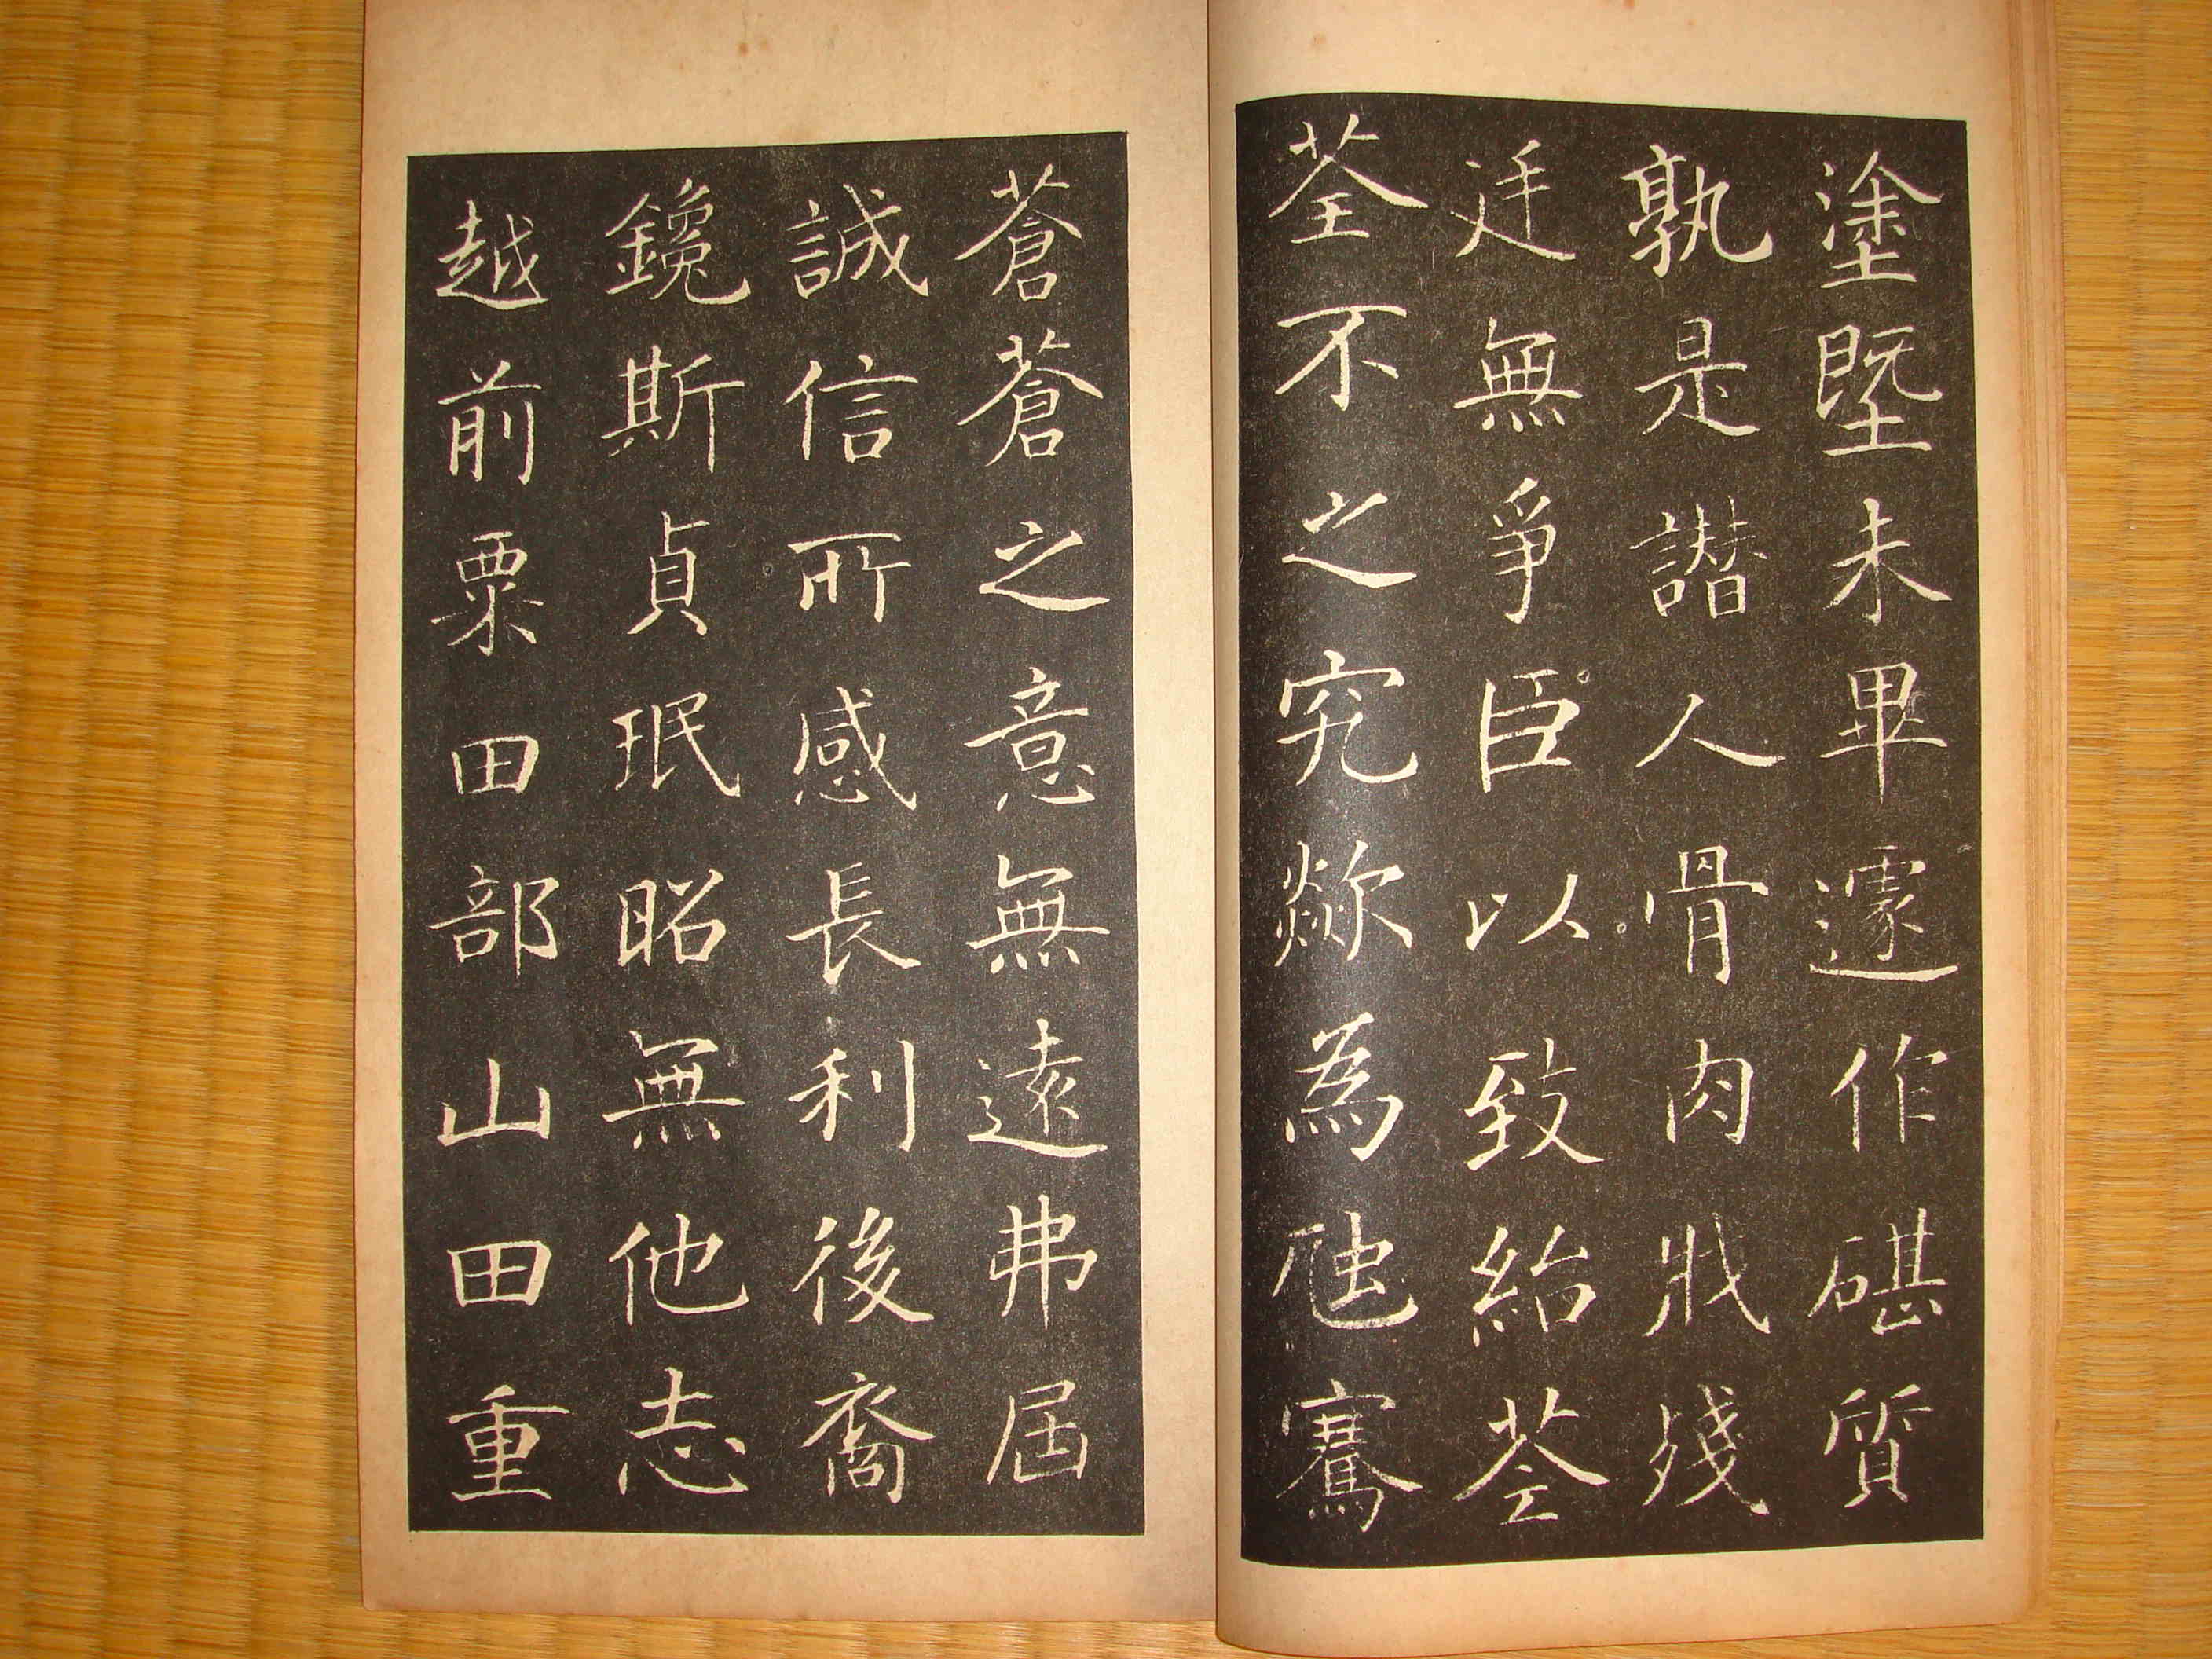 塗塈未畢遽作碪質
孰是譛人骨肉戕殘
廷無爭臣以致紿荃
荃不之究歘為虺騫
蒼蒼之意無遠弗屆
誠信所感長利後裔
鑱斯貞珉昭無他志
越前粟田部山田重